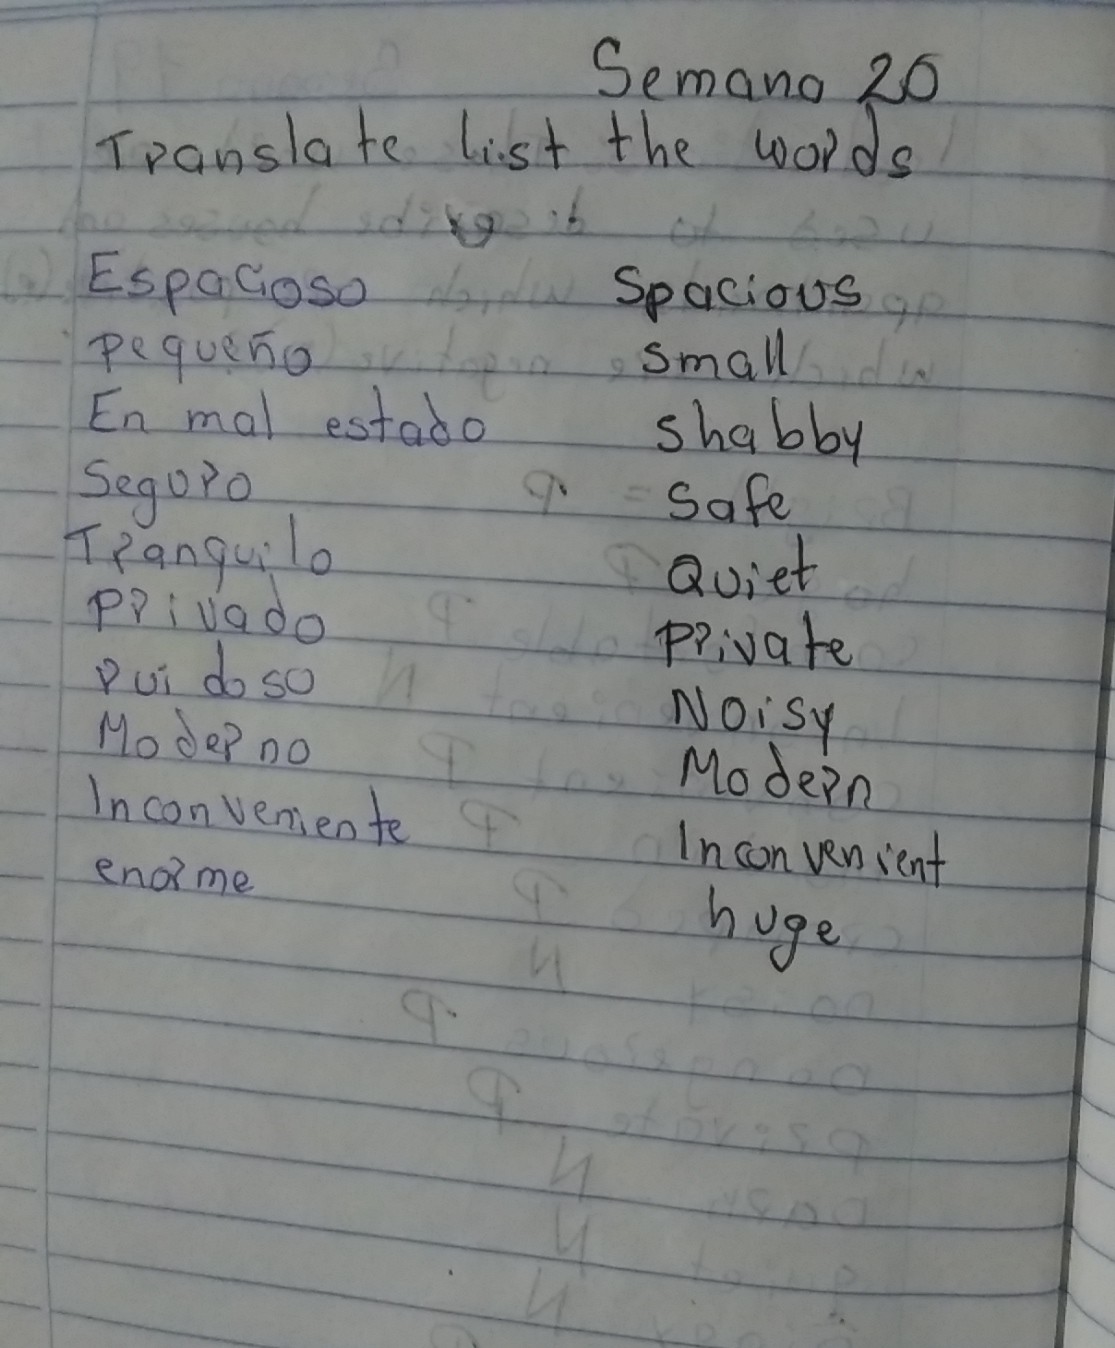 Semana 20
Translate list the words
Espacioso Spacious
pequeño small
En mal estado shabby
Seguro Safe
Tranquilo Quiet
Privado Private
Ruidoso Noisy
Moderno Modern
Inconveniente Inconvenient
enorme huge